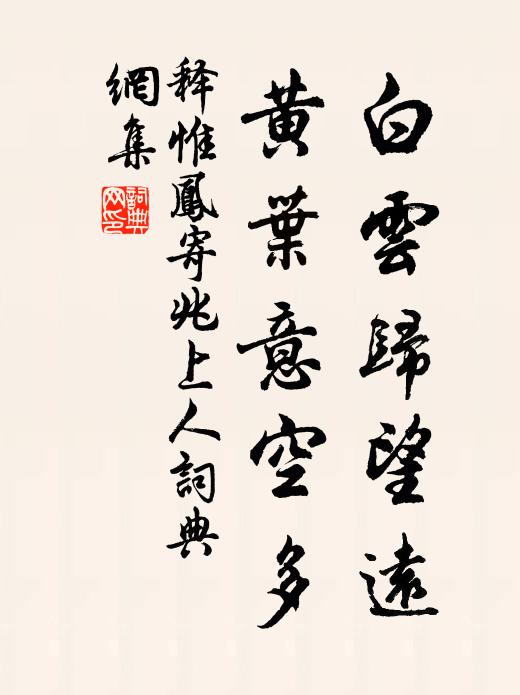 白雲歸望遠
黃葉意空多
释惟鳳寄兆上人詞典
網集
詞典网印